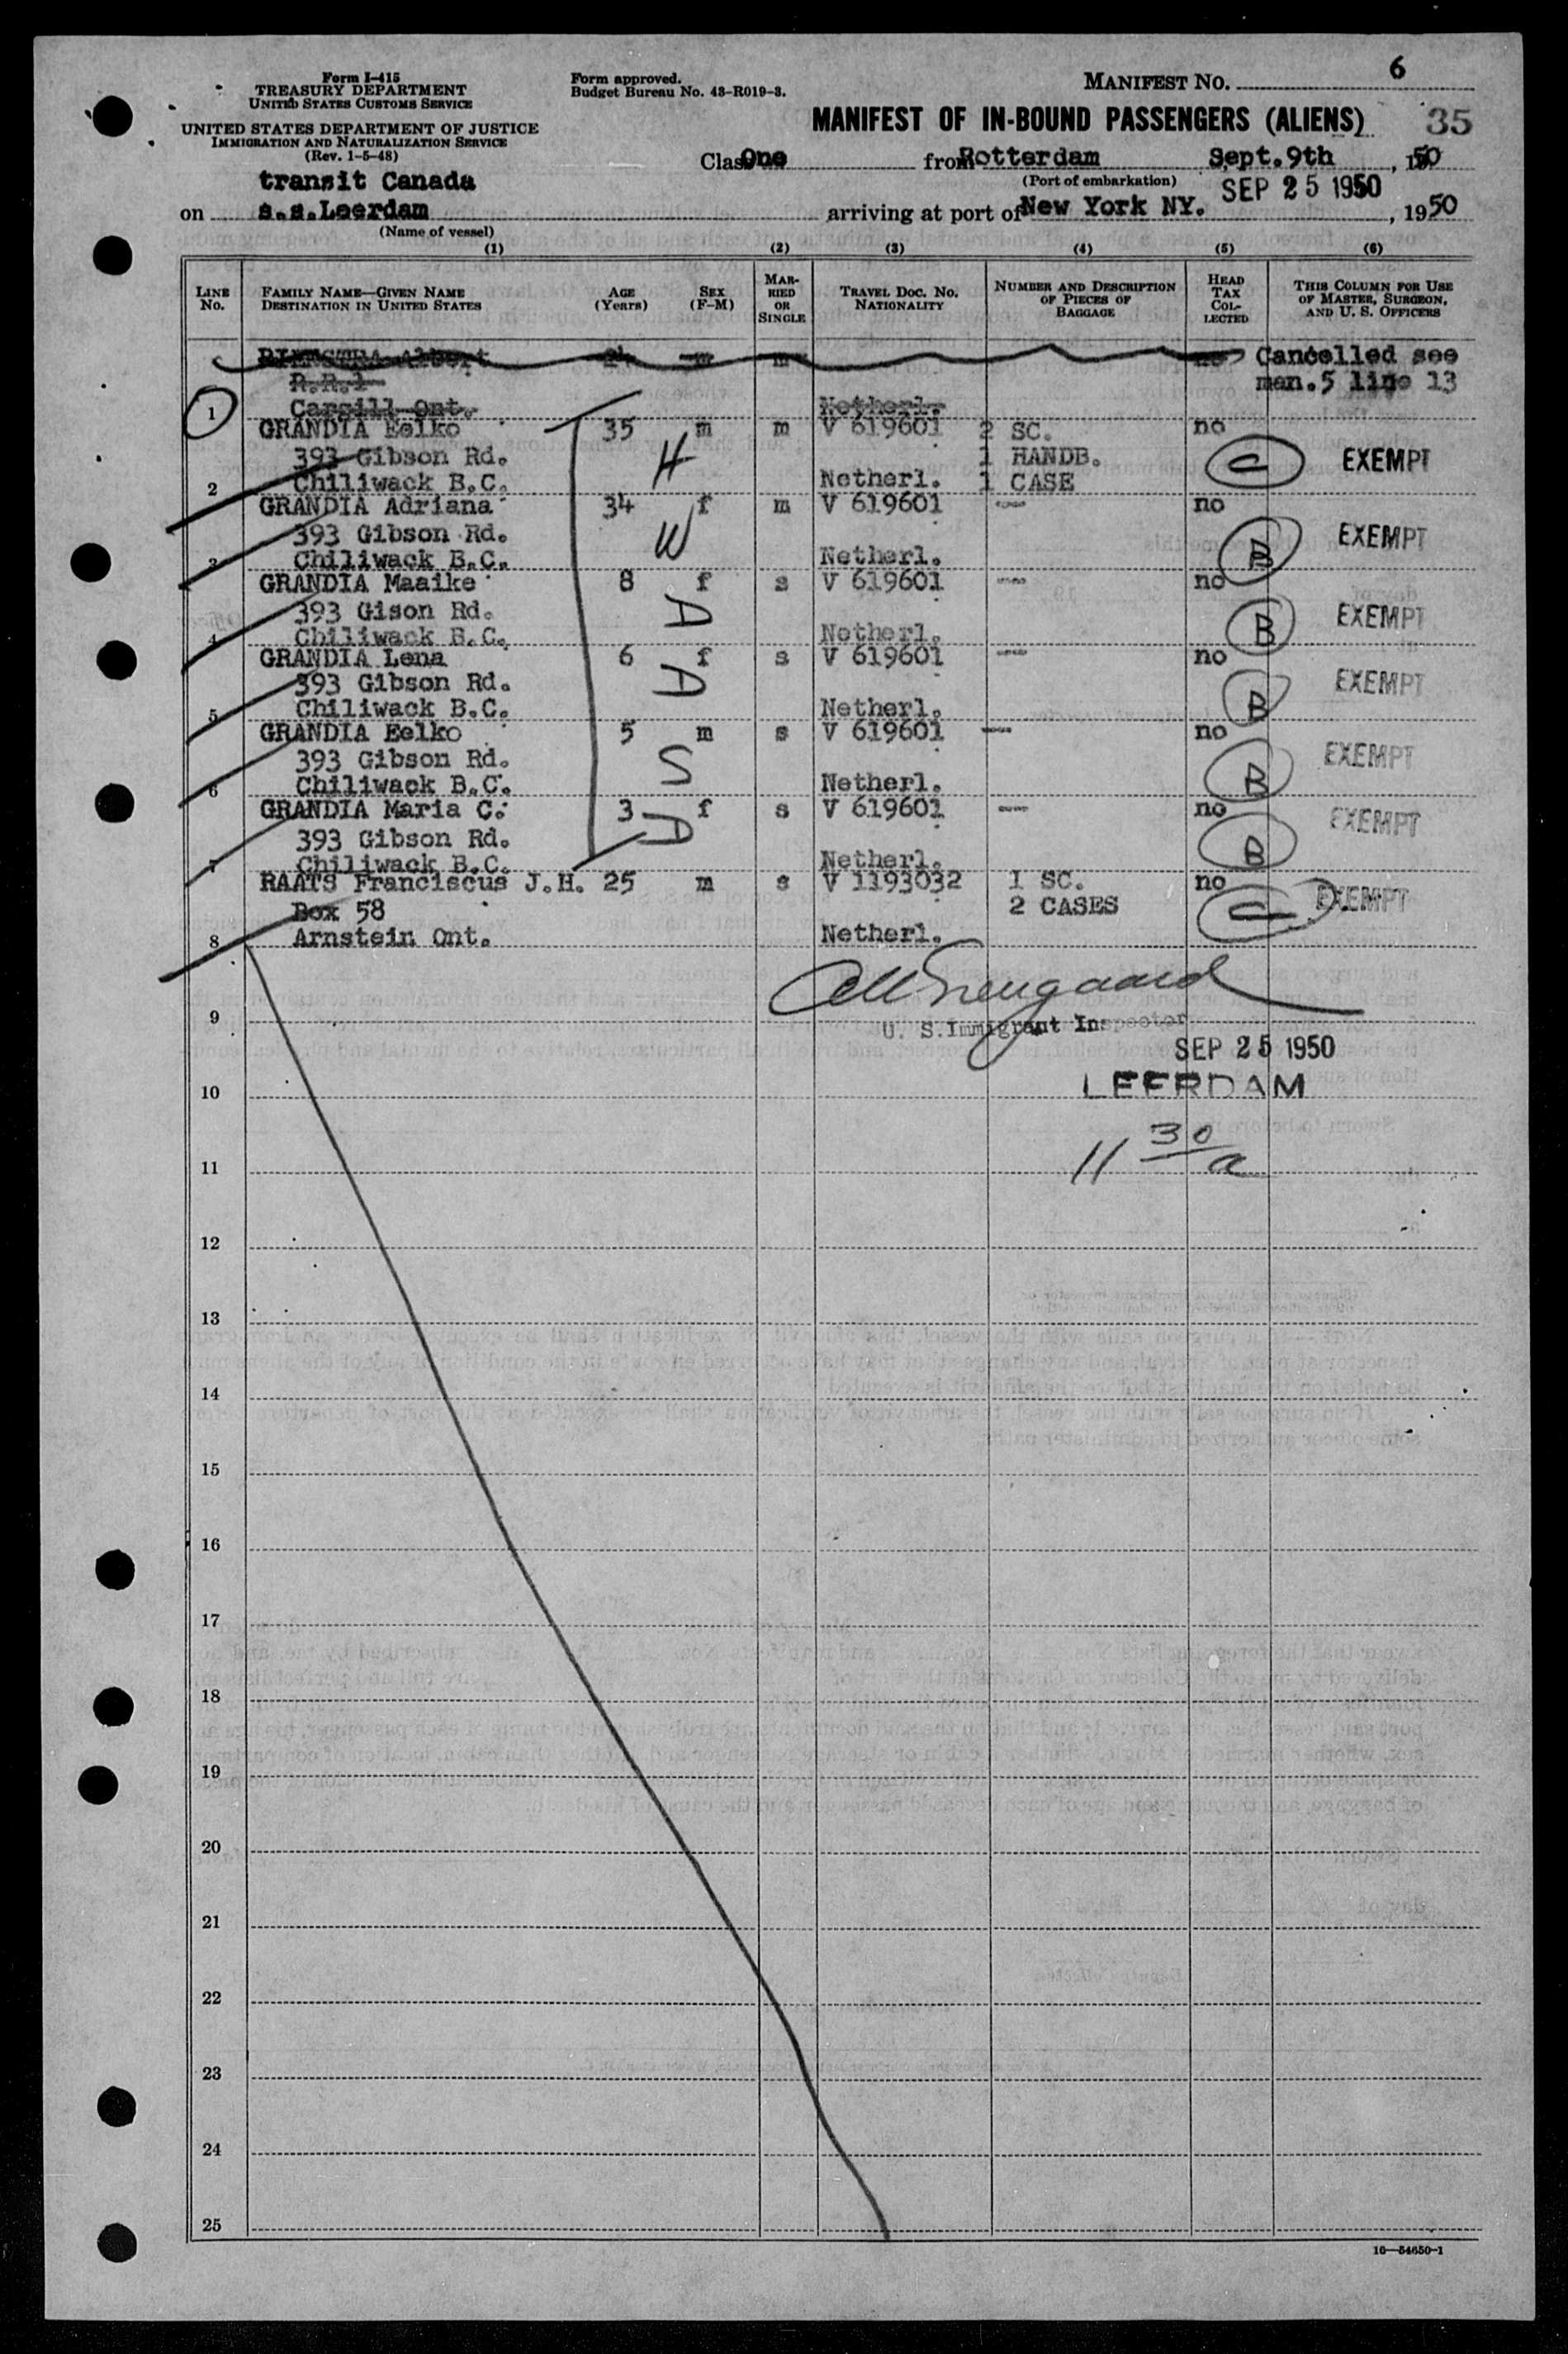 Form I-415
TREASURY DEPARTMENT
UNITED STATES CUSTOMS SERVICE
UNITED STATES DEPARTMENT OF JUSTICE
IMMIGRATION AND NATURALIZATION SERVICE
(Rev. 1-5-48)
Form approved.
Budget Bureau No. 43-R019-3.
MANIFEST NO. 6
MANIFEST OF IN-BOUND PASSENGERS (ALIENS) 35
Class One from Rotterdam Sept.9th, 1950
(Port of embarkation)
transit Canada
on s.s.Leerdam arriving at port of New York NY. SEP 25 1950, 1950
(Name of vessel)
(1) (2) (3) (4) (5) (6)
LINE No.
FAMILY NAME—GIVEN NAME
DESTINATION IN UNITED STATES
AGE (Years)
SEX (F-M)
MARRIED OR SINGLE
TRAVEL DOC. NO.
NATIONALITY
NUMBER AND DESCRIPTION OF PIECES OF BAGGAGE
HEAD TAX COLLECTED
THIS COLUMN FOR USE OF MASTER, SURGEON, AND U. S. OFFICERS
Albert 24 m m no Cancelled see
R.R.1 man.5 line 13
1 Cargill Ont. Netherl.
GRANDIA Eelko 35 m m V 619601 2 SC. no
393 Gibson Rd. H 1 HANDB. C EXEMPT
2 Chiliwack B.C. Netherl. 1 CASE
GRANDIA Adriana 34 f m V 619601 — no
393 Gibson Rd. W B EXEMPT
3 Chiliwack B.C. Netherl.
GRANDIA Maaike 8 f s V 619601 — no
393 Gison Rd. D B EXEMPT
4 Chiliwack B.C. Netherl.
GRANDIA Lena 6 f s V 619601 — no
393 Gibson Rd. D B EXEMPT
5 Chiliwack B.C. Netherl.
GRANDIA Eelko 5 m s V 619601 — no
393 Gibson Rd. S B EXEMPT
6 Chiliwack B.C. Netherl.
GRANDIA Maria C. 3 f s V 619601 — no
393 Gibson Rd. D B EXEMPT
7 Chiliwack B.C. Netherl.
RAATS Franciscus J.H. 25 m s V 1193032 1 SC. no
Box 58 2 CASES C EXEMPT
8 Arnstein Ont. Netherl.
9
U. S. Immigrant Inspector
SEP 25 1950
10 LEERDAM
11 11 30/a
12
13
14
15
16
17
18
19
20
21
22
23
24
25
16—54650-1